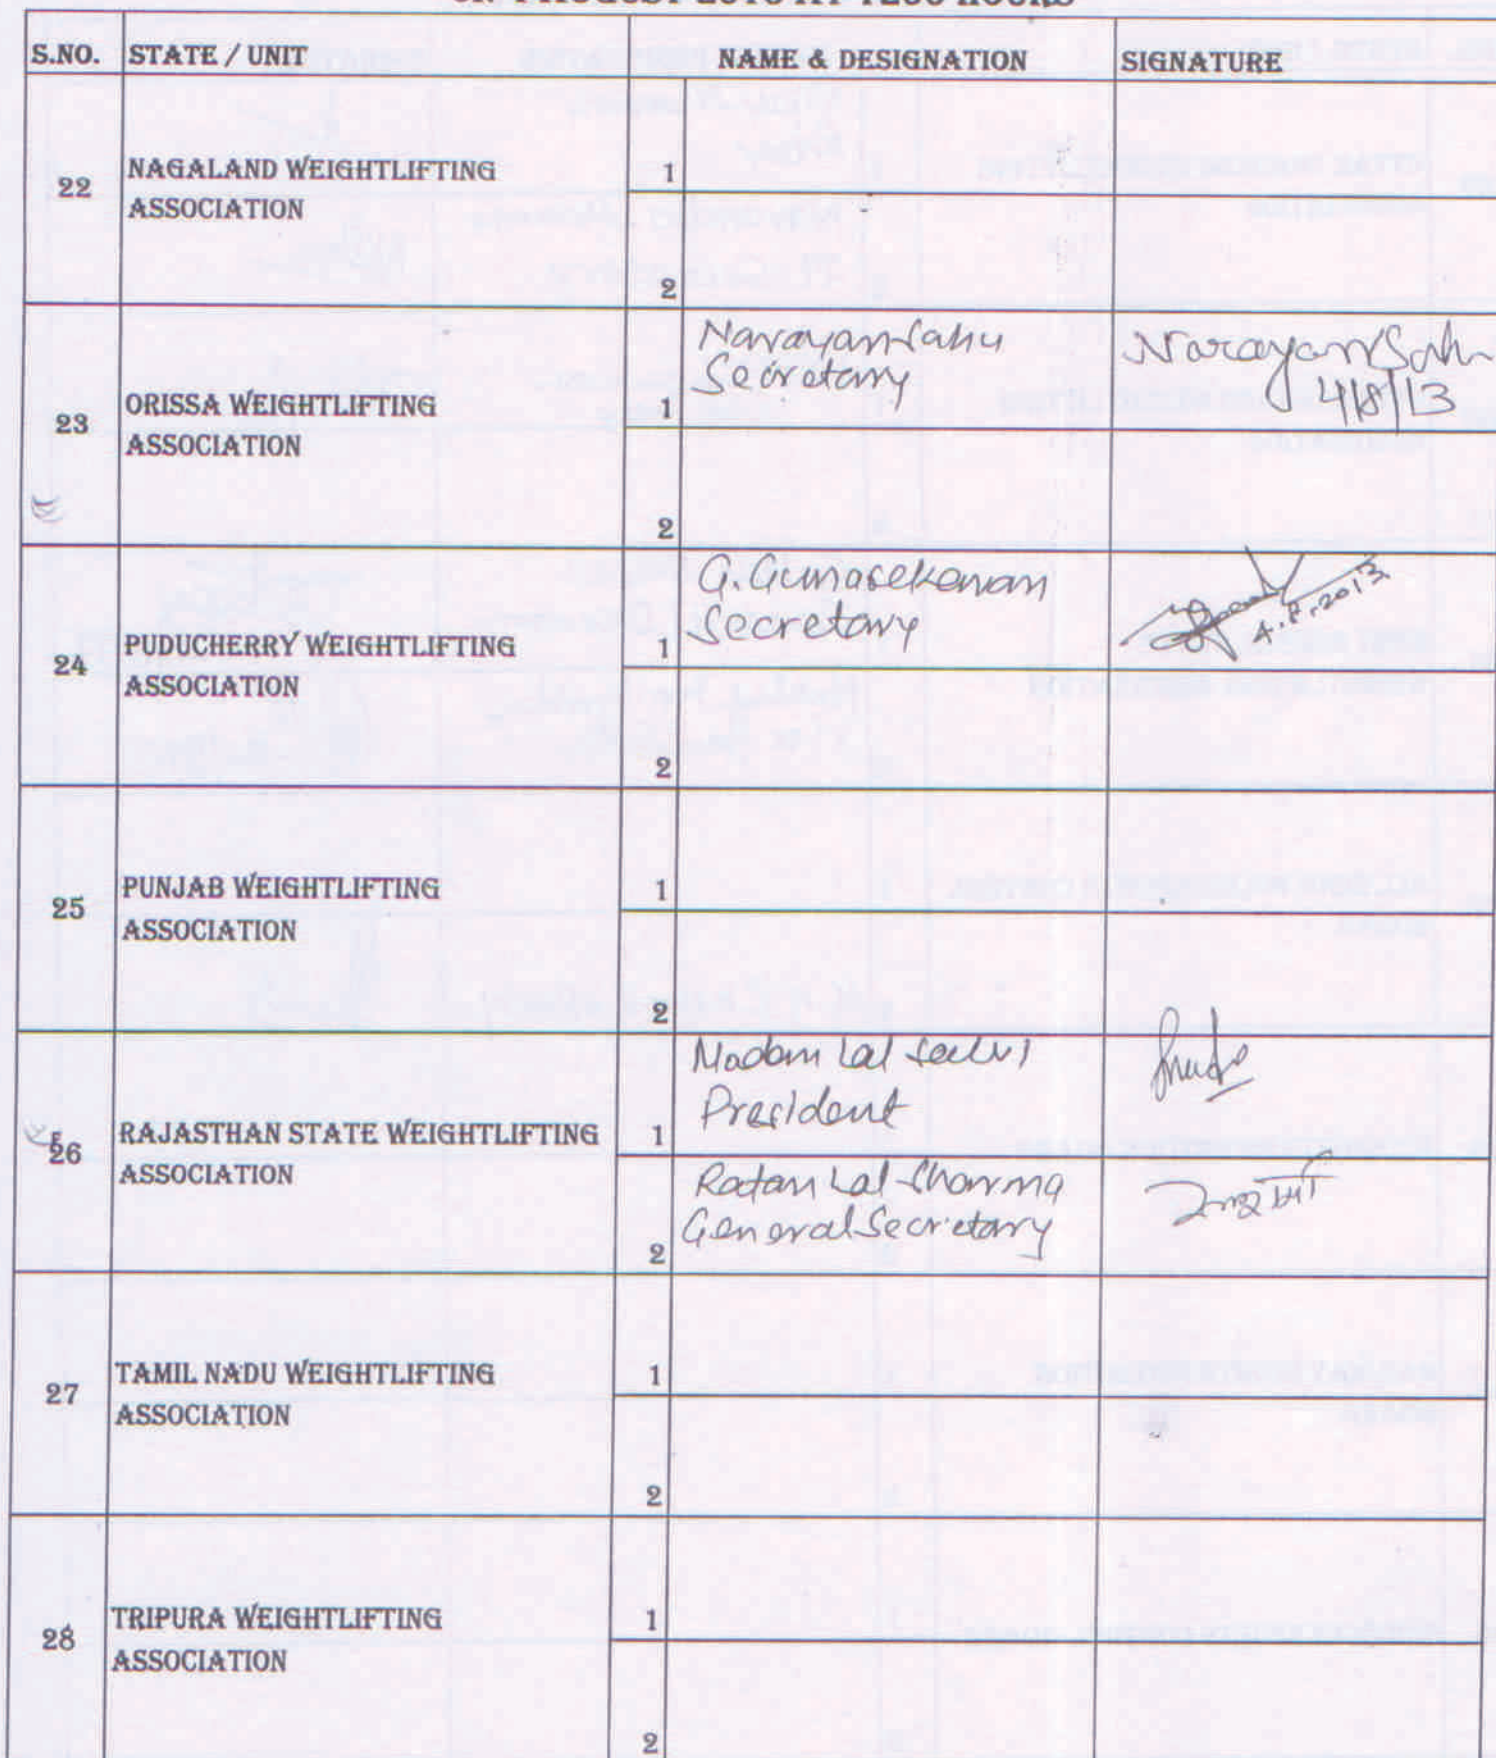 S.NO. STATE / UNIT NAME & DESIGNATION SIGNATURE
22 NAGALAND WEIGHTLIFTING ASSOCIATION
1
2
23 ORISSA WEIGHTLIFTING ASSOCIATION
1 Narayan Sahu
Secretary
Narayan Sahu
4/8/13
2
24 PUDUCHERRY WEIGHTLIFTING ASSOCIATION
1 G. Gunasekaran
Secretary
4.8.2013
2
25 PUNJAB WEIGHTLIFTING ASSOCIATION
1
2
26 RAJASTHAN STATE WEIGHTLIFTING ASSOCIATION
1 Madan Lal Salvi
President
2 Ratan Lal Sharma
General Secretary
27 TAMIL NADU WEIGHTLIFTING ASSOCIATION
1
2
28 TRIPURA WEIGHTLIFTING ASSOCIATION
1
2